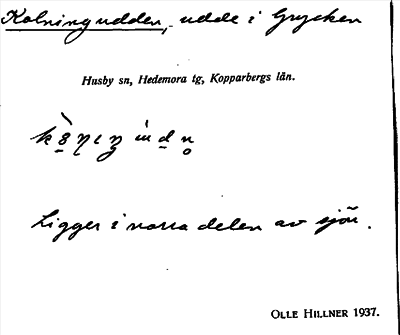 Kolningudden, udde i Grycken
Husby sn, Hedemora tg, Kopparbergs län.
Ligger i norra delen av sjön.
OLLE HILLNER 1937.